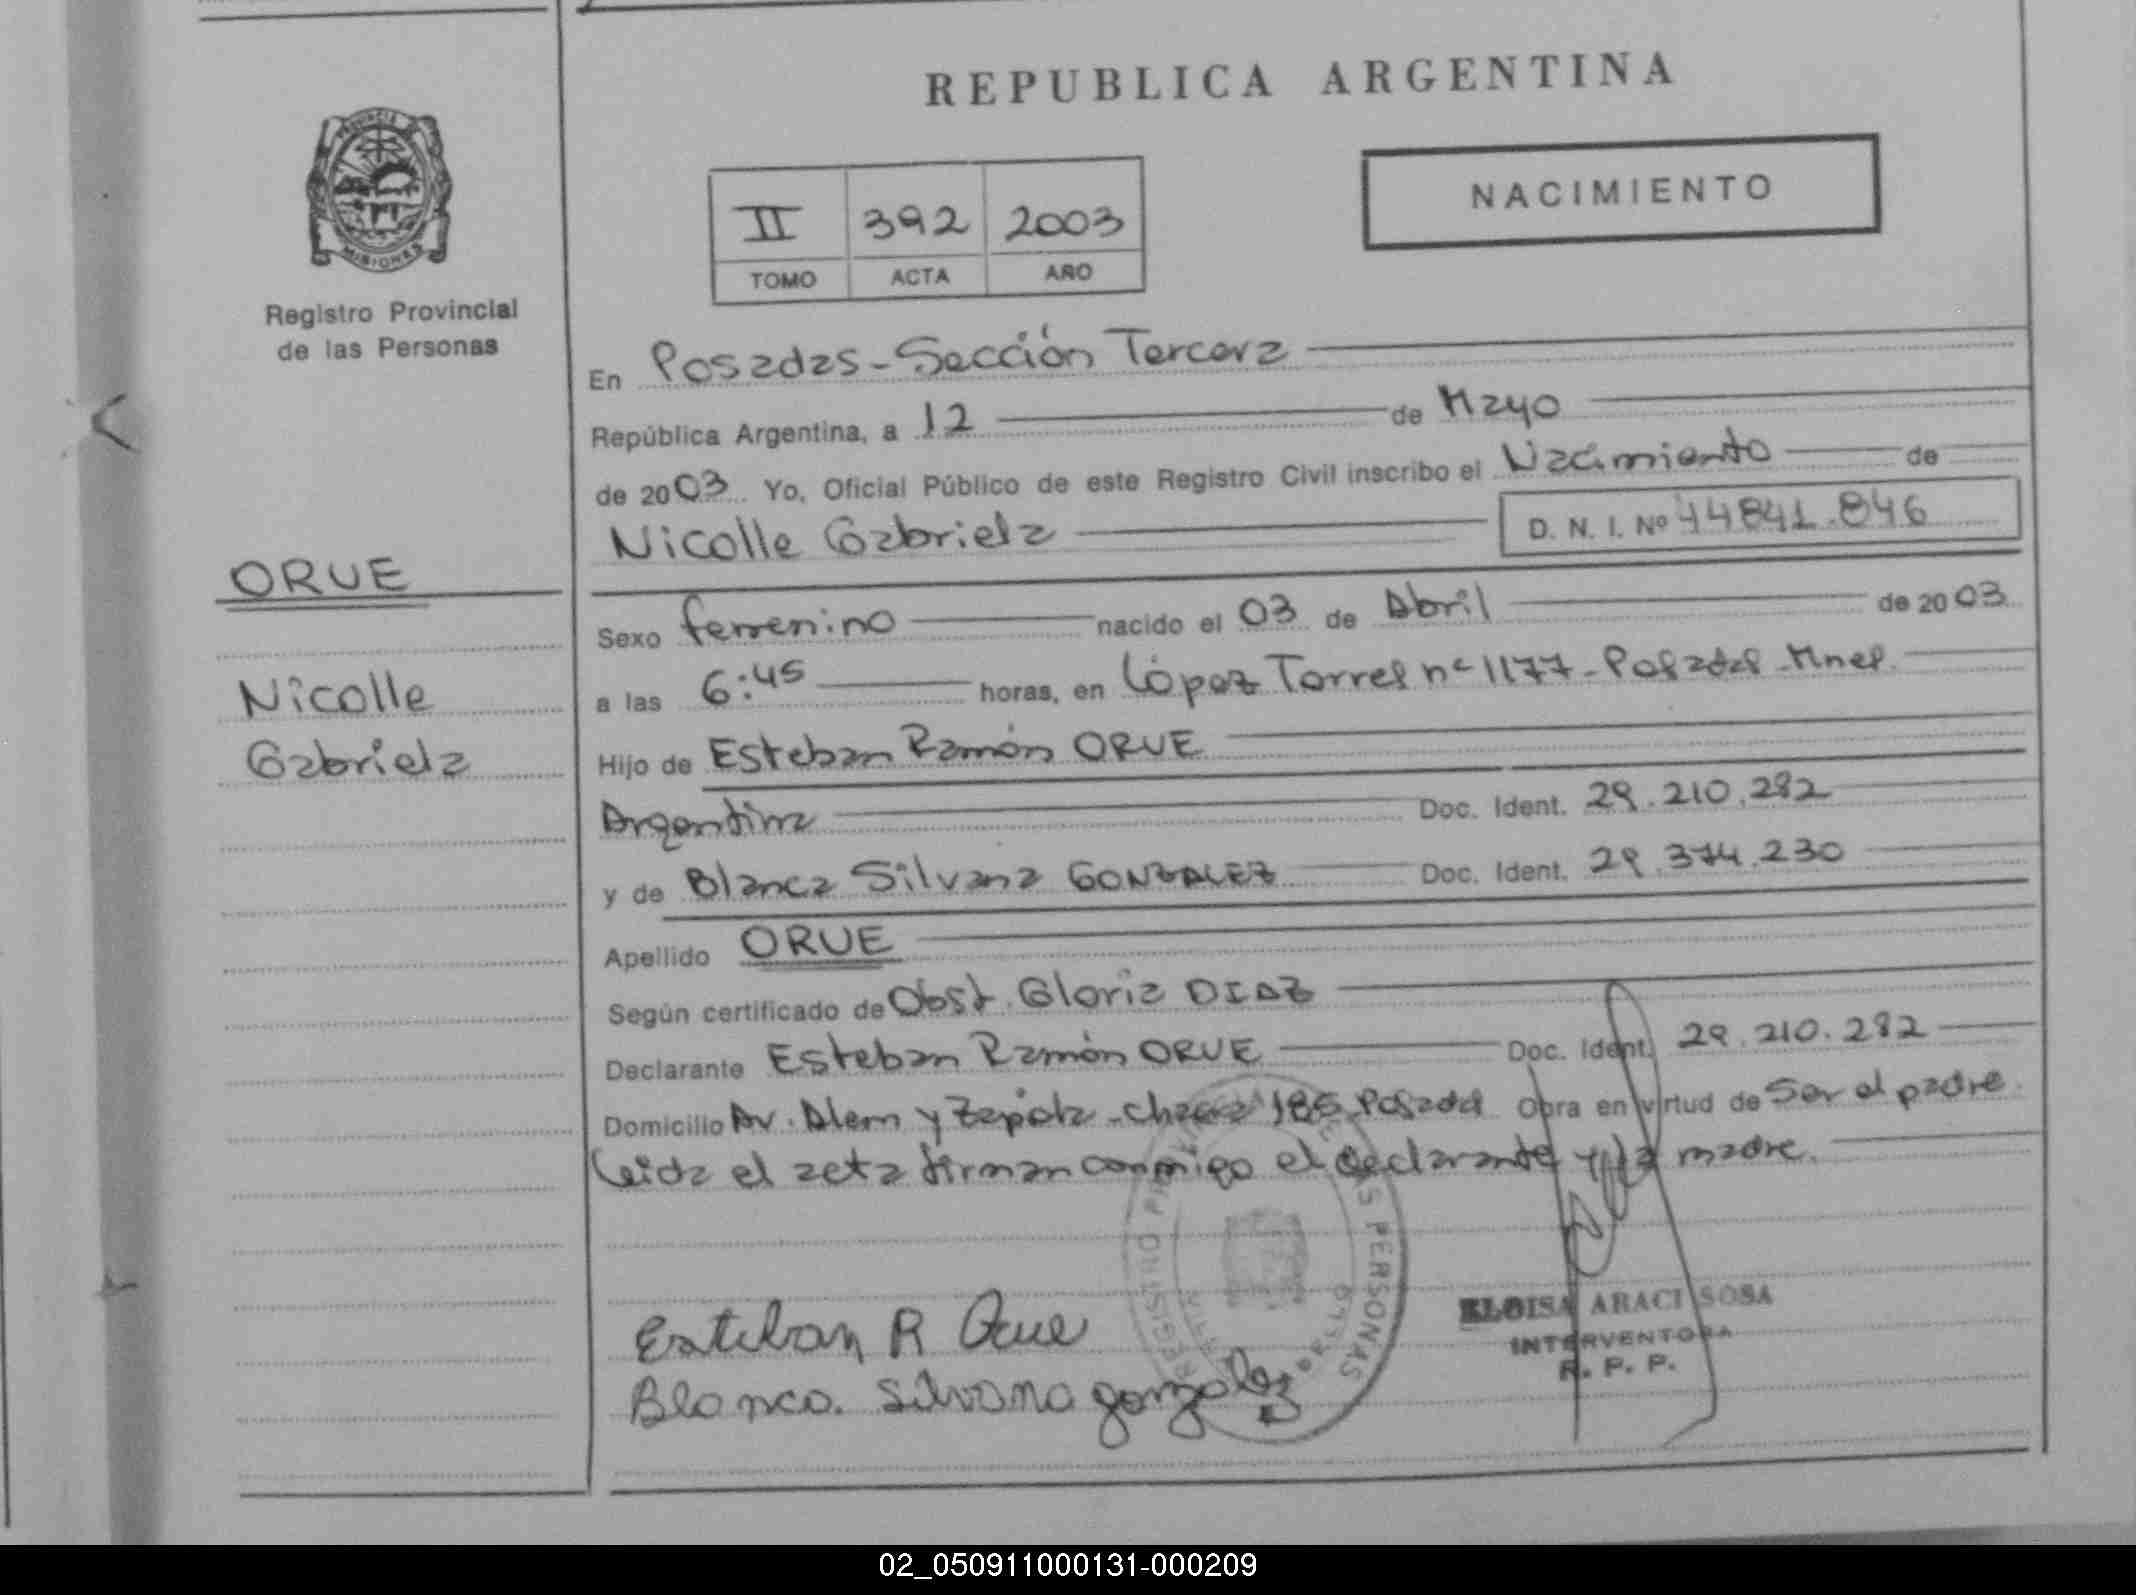 REPUBLICA ARGENTINA
NACIMIENTO
II 392 2003
TOMO ACTA AÑO
PROVINCIA DE
MISIONES
Registro Provincial
de las Personas
ORUE
Nicolle
Gabriela
En Posadas - Sección Tercera
República Argentina, a 12 de Mayo
de 2003 Yo, Oficial Público de este Registro Civil inscribo el Nacimiento de
Nicolle Gabriela D. N. I. Nº 44841.846
Sexo femenino nacido el 03 de Abril de 2003
a las 6:45 horas, en López Torres nº 1177 - Posadas - Mnes.
Hijo de Esteban Ramón ORUE
Argentina Doc. Ident. 29.210.282
y de Blanca Silvana GONZALEZ Doc. Ident. 29.374.230
Apellido ORUE
Según certificado de Obst. Gloria DIAZ
Declarante Esteban Ramón ORUE Doc. Ident. 29.210.282
Domicilio Av. Alem y Zapiola - chacra 186 Posadas Obra en virtud de Ser el padre.
leida el acta firman conmigo el declarante y la madre.
Esteban R Orue
Blanca. Silvana gonzalez
REGISTRO PERSONAS
ELOISA ARACI SOSA
INTERVENTORA
R. P. P.
02_050911000131-000209